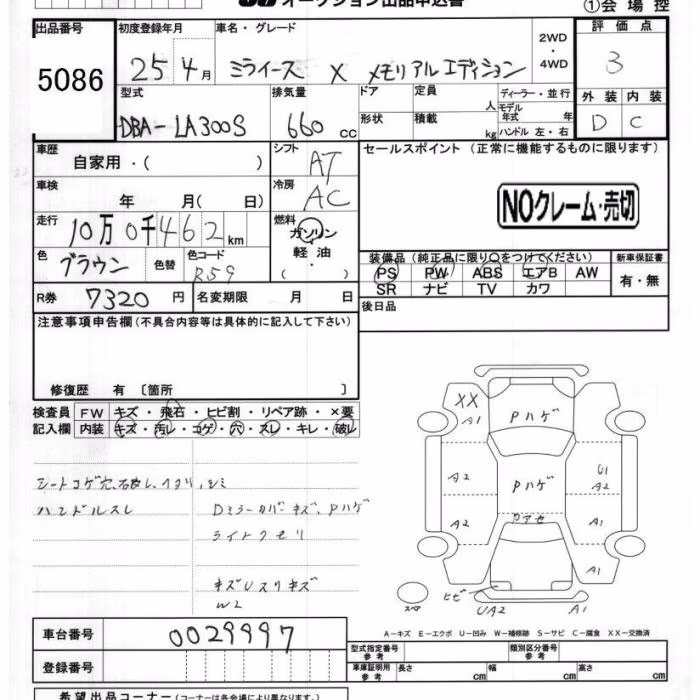 オークション出品申込書
①会場控
出品番号 初度登録年月 車名・グレード 2WD・4WD 評価点
5086 25 4月 ミライース X メモリアルエディション 3
型式 排気量 ドア 定員 人 ディーラー・並行 外装 内装
DBA-LA300S 660 cc 形状 積載 kg モデル年式 年 ハンドル 左・右 D C
車歴 自家用・( ) シフト AT セールスポイント (正常に機能するものに限ります)
車検 年 月( 日) 冷房 AC NOクレーム・売切
走行 10万0千462km 燃料 ガソリン・軽油・( )
色 ブラウン 色替 色コード R59 装備品 (純正品に限り○をつけてください) 新車保証書
PS PW ABS エアB AW 有・無
SR ナビ TV カワ
R券 7320円 名変期限 月 日 後日品
注意事項申告欄 (不具合内容等は具体的に記入して下さい)
修復歴 有 [箇所 ]
検査員 FW キズ・飛石・ヒビ割・リペア跡・×要
記入欄 内装 キズ・汚レ・コゲ・穴・スレ・キレ・破レ
シートコゲ穴、破レ、シミ
ハンドルスレ Dミラーカバーキズ、Pハゲ
ライトクモリ
キズUスリキズ
W2
XX A1 Pハゲ
A2 Pハゲ U1 A2
A2 A1
A1
スペア ヒビ UA2 A1
A-キズ E-エクボ U-凹み W-補修跡 S-サビ C-腐食 XX-交換済
車台番号 0029997
型式指定番号 参考 類別区分番号 参考
登録番号 車庫証明用 参考 長さ cm 幅 cm 高さ cm
希望出品コーナー (コーナーは各会場により異なります。)